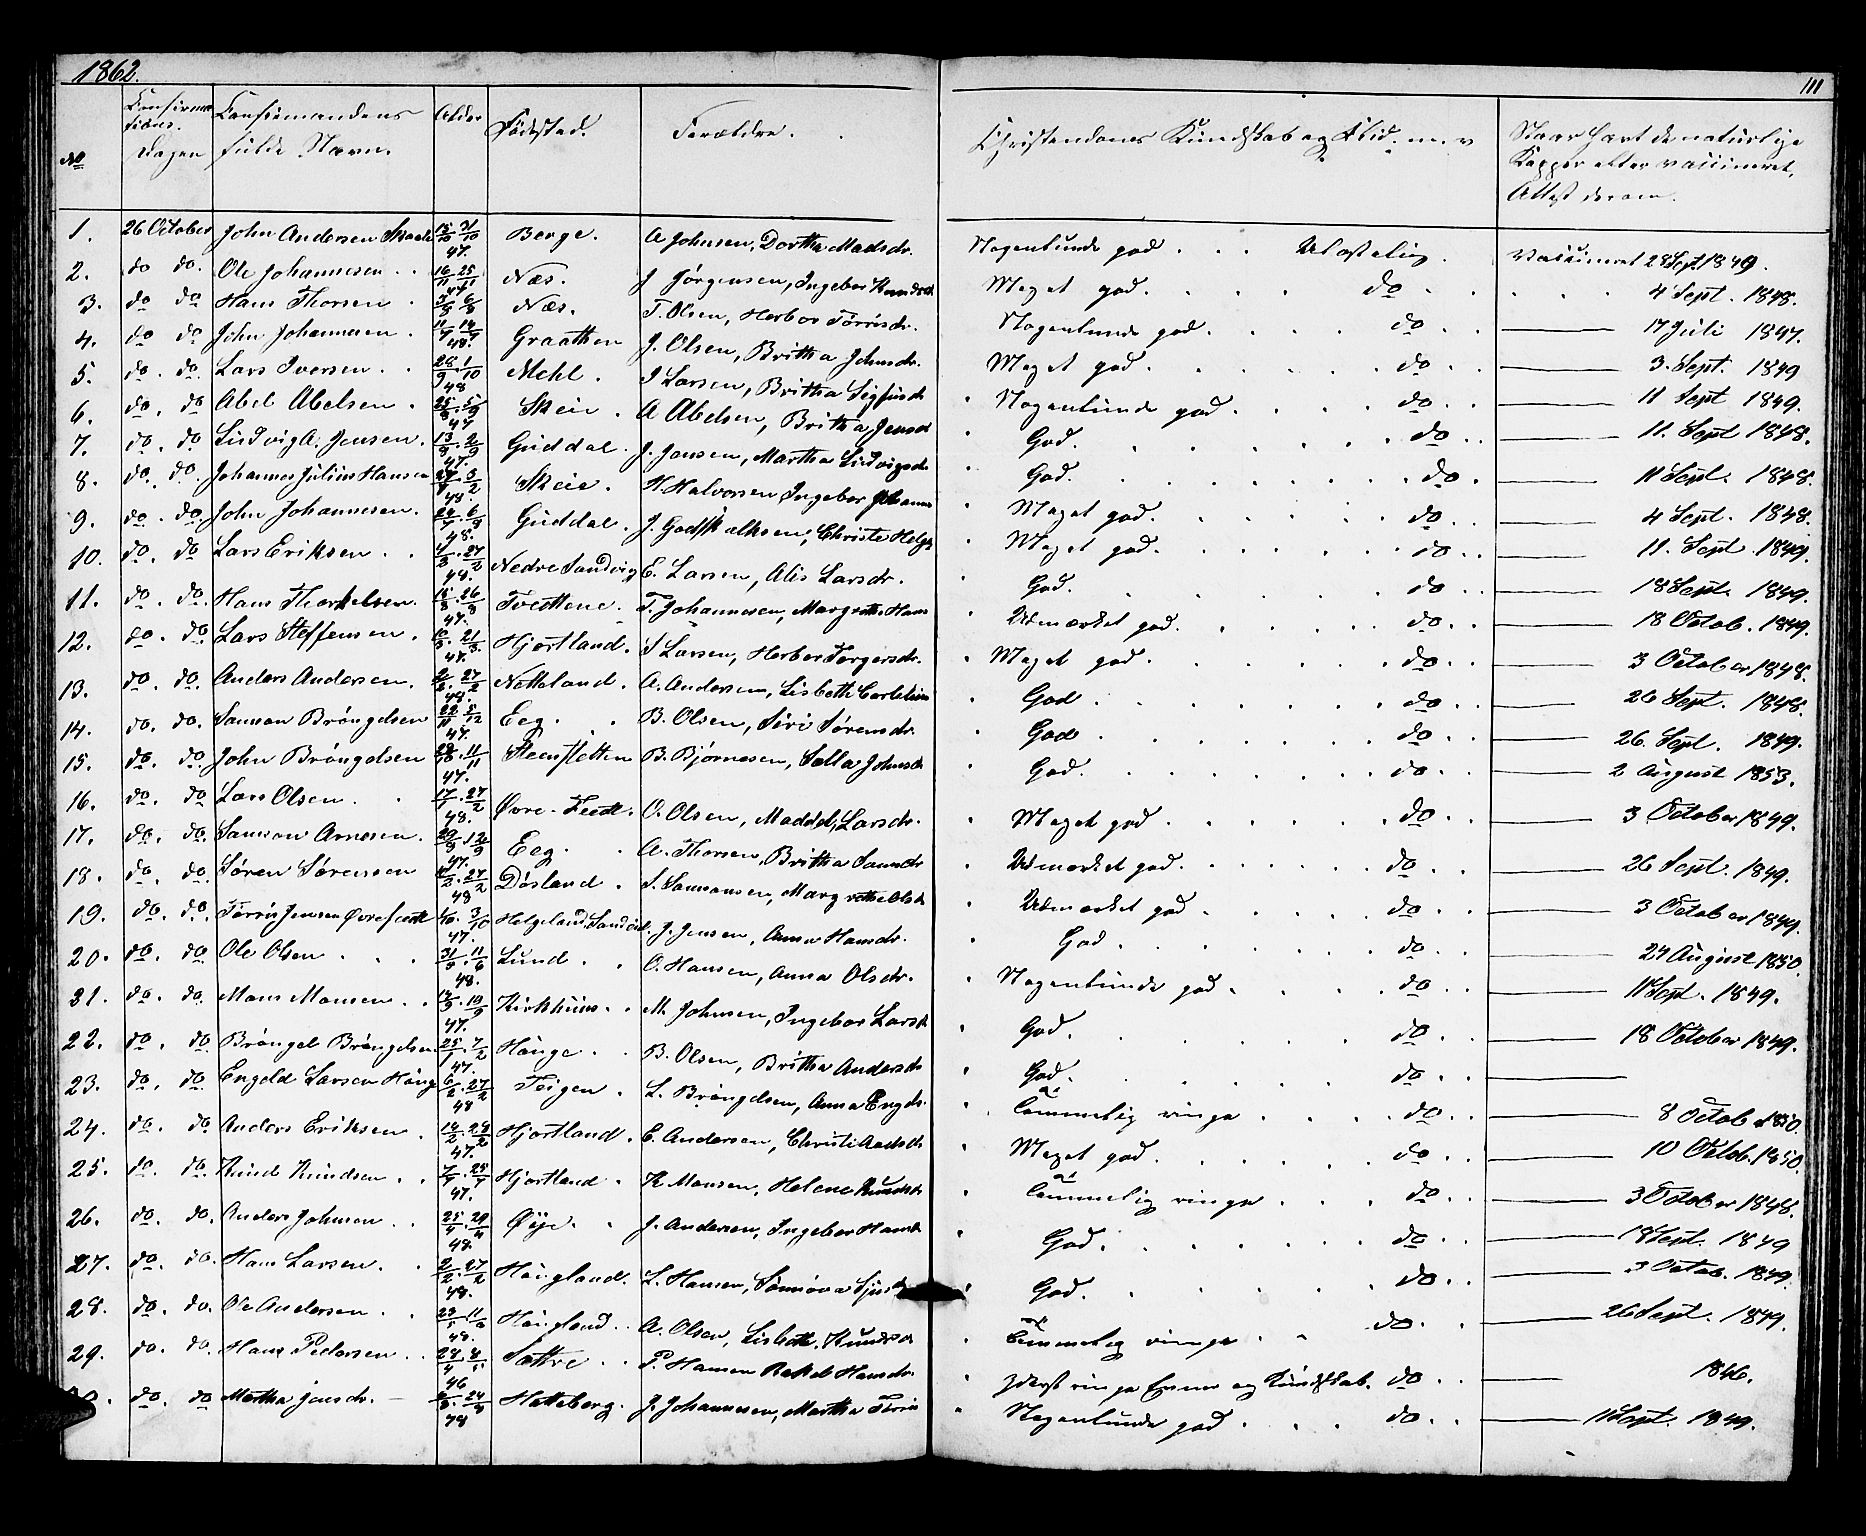 1862.
111
No
Confirmations. Dagen
Confirmandens fulde Navn.
Alder
Fødested.
Forældre.
Christendoms Kundskab og Flid. m. v
Naar havt de naturlige Kopper eller vaccineret, Attest derom.
1. 26 October John Andersen Skaale 47. Berge. A Johnsen, Dorthe Madsdr. Nogenlunde god . . . Ulastelig. vaccineret 28 Sept 1849.
2. do do. Ole Johannesen . . 16/11 25/11 47 Næs. J Jørgensen, Ingebor Knudsdr Meget god . . . do . . 4 Sept. 1848.
3. do do Hans Thorsen . Næs. T. Olsen, Herbor Tørrisdr. Nogenlunde god. . . . do . . 17 Juli 1847.
4. do do John Johannesen . 48. Graathen J. Olsen, Britha Johnsdr. Meget god . . . do . . 3. Sept. 1849
5. do. do. Lars Iversen . . 26/9 1/10 48 Mehl. I Larsen, Britha Sigfusdr Nogenlunde god . . . do . . 11 Sept 1849.
6. do. do Abel Abelsen . 47 Skeie . A Abelsen, Britha Jensdr God. . . . do . . 11. Sept 1848.
7. do. do Ludvig A. Jensen . 47. Guddal. J. Jensen, Martha Ludvigsdr God. . . . do . 11 Sept. 1848.
8. do. do. Johannes Julius Hansen 48. Skeie. H Halvorsen, Ingebor Johannes Meget god. . . . do . . 4 Sept. 1848.
9. do. do John Johannesen . 48. Guddal . J. Godskalksen, Christe Helge Meget god. . . . do . . 11. Sept. 1849.
10. do. do Lars Eriksen . . 48. Nedre Sandvig E. Larsen, Alis Larsdr. God. . . . do . . 18 Sept. 1849.
11. do. do. Hans Thorkelsen. 15/8 26/8 47. Tvedtene . T. Johannesen, Margrethe Hans Udmærket god. . . . do . . 18 Octob. 1849.
12. do. do. Lars Steffensen . 47. Hjortland. S Larsen, Herbor Torgersdr. Meget god. . . . do . . 3 October 1848.
13. do. do. Anders Andersen. 2/2 27/2 48. Netteland. A. Andersen, Lisbeth God . . . do . . 26 Sept. 1848.
14. do. do. Samson Brøngelsen 47. Eeg. . B. Olsen, Siri Sørensdr. God . . . do . . 26. Sept. 1849.
15. do. do. John Brøngelsen 47. Steensletten B. Bjørnesen, Salla Johnsdr God. . . . do . . 2 August 1853.
16. do. do. Lars Olsen. . 17/1 27/2 48. Øvre-Feedt. O. Olsen, Maddel Larsdr. Meget god . . . do . . 3 October 1849.
17. do. do. Samson Arnesen. 47. Eeg. . A. Thorsen, Britha Samsdr Udmærket god. . . . do . 26 Sept. 1849.
18. do. do. Søren Sørensen 27/2 48 Døsland . S. Samsonsen, Margrethe Olsdr Udmærket god . . . do . . 3 October 1849.
19. do. do. Tørris Jensen Øvrefeedt 3/10 47. Helgeland Sandvig. J. Jensen, Anna Hansdr. God . . . do . . 24 August 1850.
20. do. do. Ole Olsen . . 48. Lund. . O. Hansen, Anna Olsdr. Nogenlunde god . . . do . . 11 Sept. 1849.
21. do. do. Mons Monsen . . 47. Kirkhuus. . M Johnsen, Ingebor Larsdr God. . . . do . . 18 October 1849.
22. do. do. Brøngel Brøngelsen. 25/1 7/2 47. Hauge . . B. Olsen, Britha Andersdr God. . . . do . .
23. do. do. Engeld Larsen Haug 6/2 27/2 48 Teigen . L. Brøngelsen, Anna Engdr. Temmelig ringe . . . do . . 8 October 1850.
24. do. do Anders Eriksen . 47. Hjortland. E. Andersen, Christi Aadsdr Meget god. . . . do . . 10 Octob. 1850.
25. do. do. Knud Knudsen . . 47. Hjortland . K Monsen, Helene Knudsdr Temmelig ringe . . . do . . 3 October 1848.
26. do. do. Anders Johnsen . . 48. Øye. . J. Andersen, Ingebor Hansdr God. . . . do . . 18 Sept. 1849
27. do. do. Hans Larsen. . 2/2 27/2 48. Haugland. L. Hansen, Sønnøva God. . . . do . . 3 Octob. 1849.
28. do. do. Ole Andersen . . 48. Haugland . A. Olsen, Lisbeth Knudsdr Temmelig ringe . . do . . 26 Sept. 1849.
29. do. do. Hans Pedersen . . 46 Sættre . . P. Hansen Rakel Hansdr. Yderst ringe Evner og Kundskab. do . . 1846.
do. do Martha Jensdr. 48 Hatteberg. J. Johannesen, Martha Tørris Nogenlunde god . . . do . . 11 Sept. 1849.